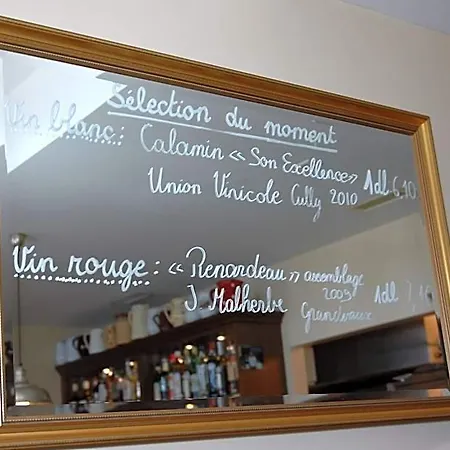 Sélection du moment
Vin blanc : Calamin « Son Excellence » 1dl 6.10
Union Vinicole Cully 2010
Vin rouge : « Renardeau » assemblage
2009
J. Malherbe 1dl
Grandvaux